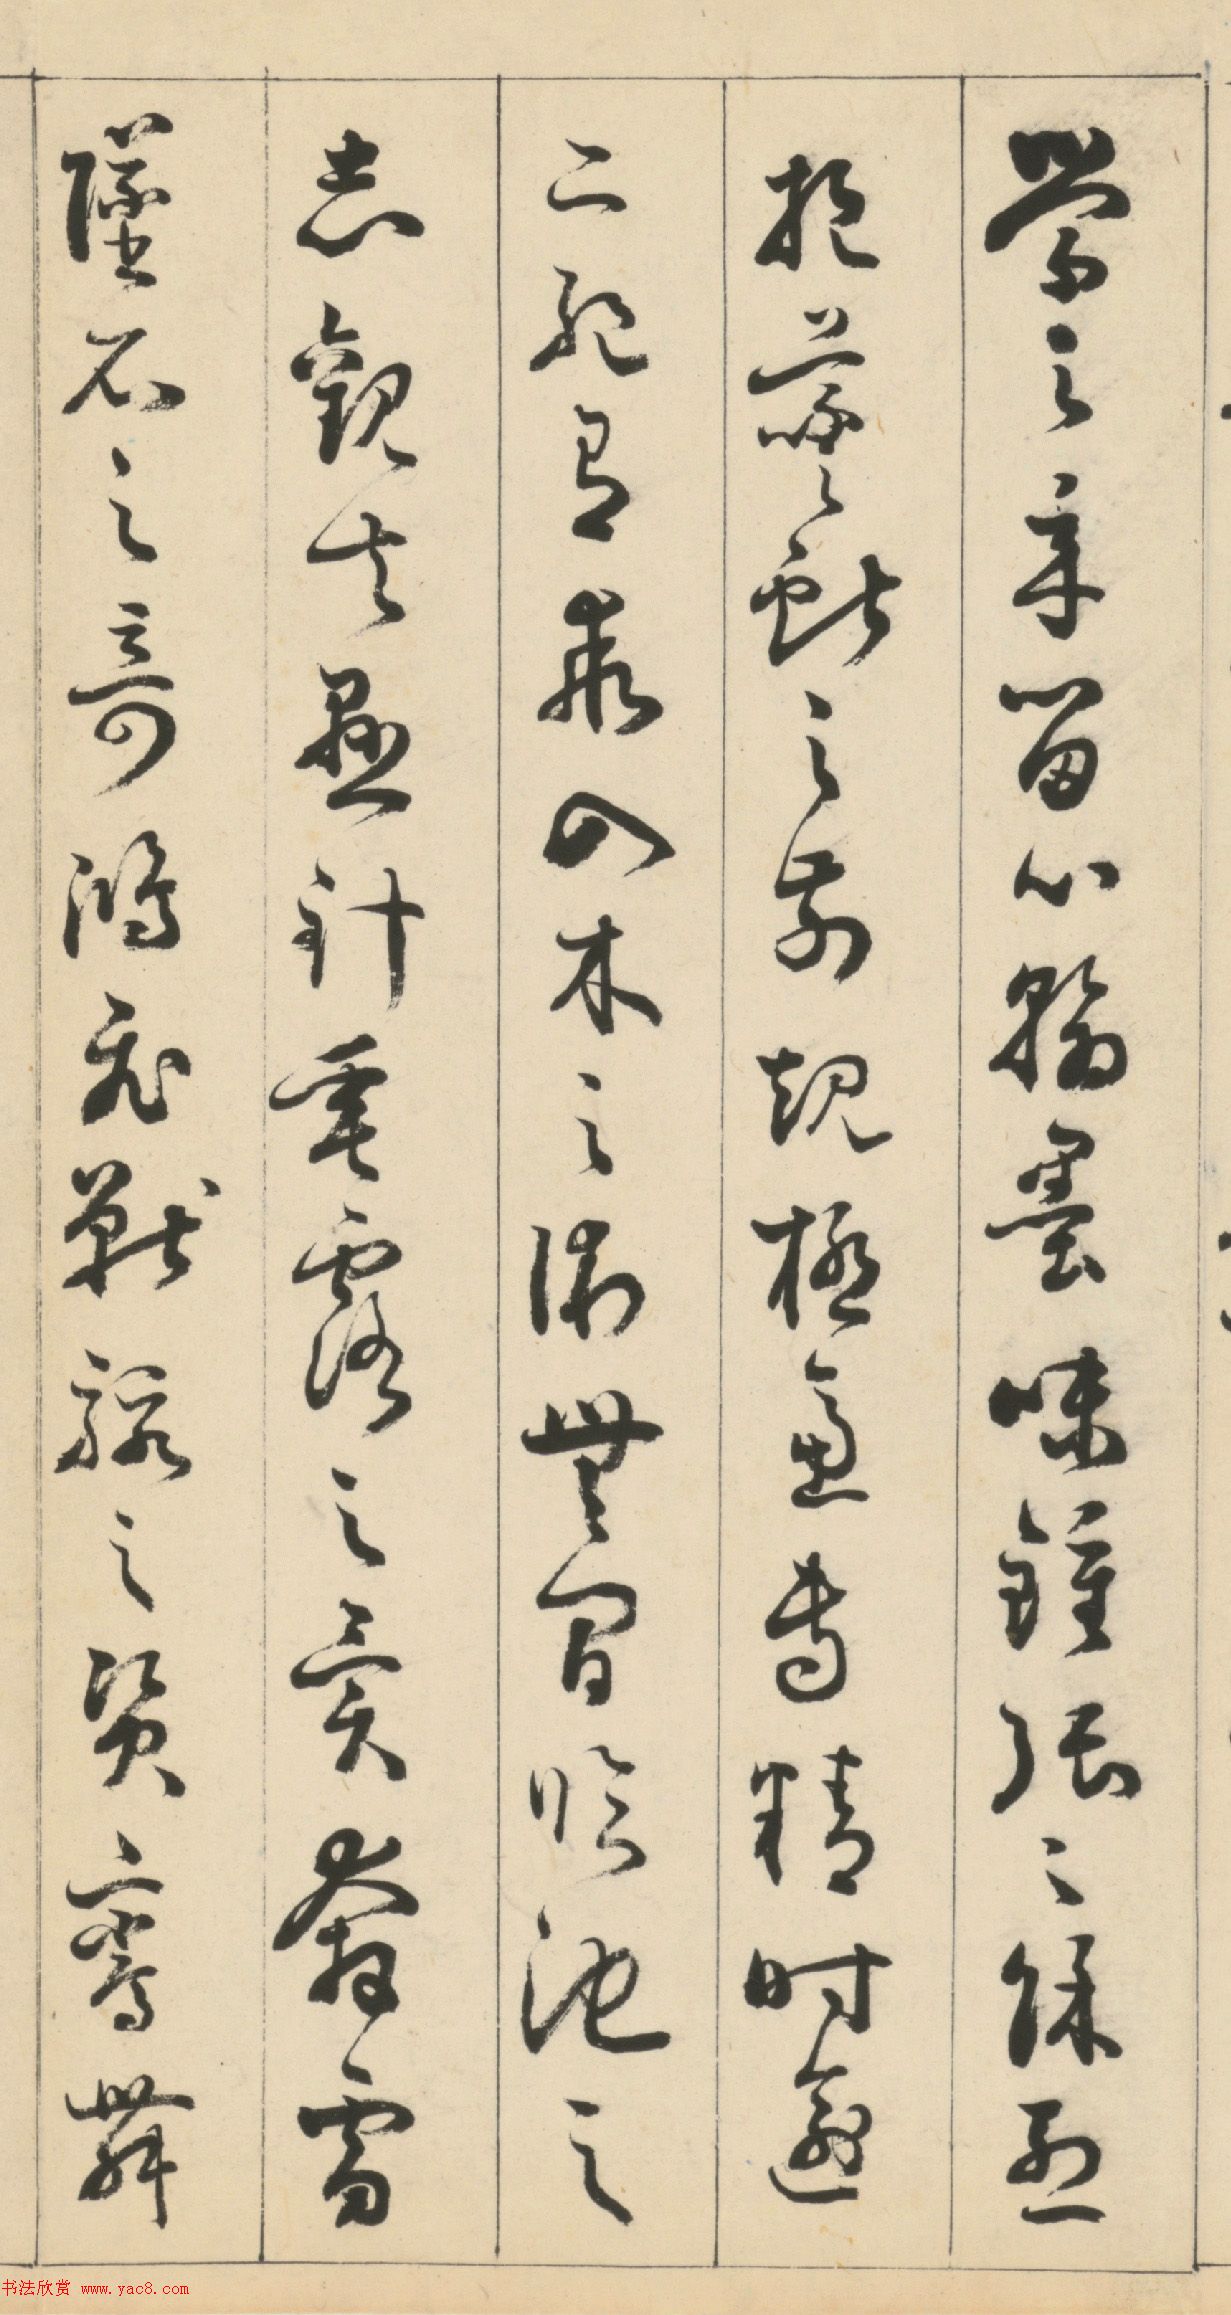 學之年留心翰墨味鍾張之餘烈
挹羲獻之前規極慮專精時逾
二紀有乖入木之術無間臨池之
志觀夫懸針垂露之異奔雷
墜石之奇鴻飛獸駭之資鸞舞
书法欣赏 www.yac8.com